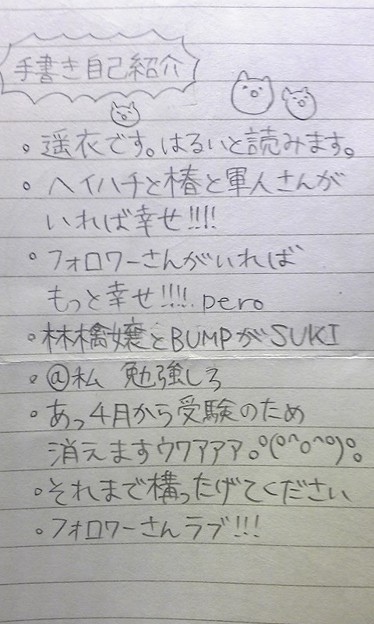 手書き自己紹介
。遥衣です。はるいと読みます。
。ヘイハチと椿と軍人さんが
いれば幸せ!!!!
。フォロワーさんがいれば
もっと幸せ!!!!pero
。林檎嬢とBUMPがSUKI
。@私 勉強しろ
。あっ4月から受験のため
消えますウワアアア。゜(゜^o^゜)゜。
。それまで構ったげてください
。フォロワーさんラブ!!!